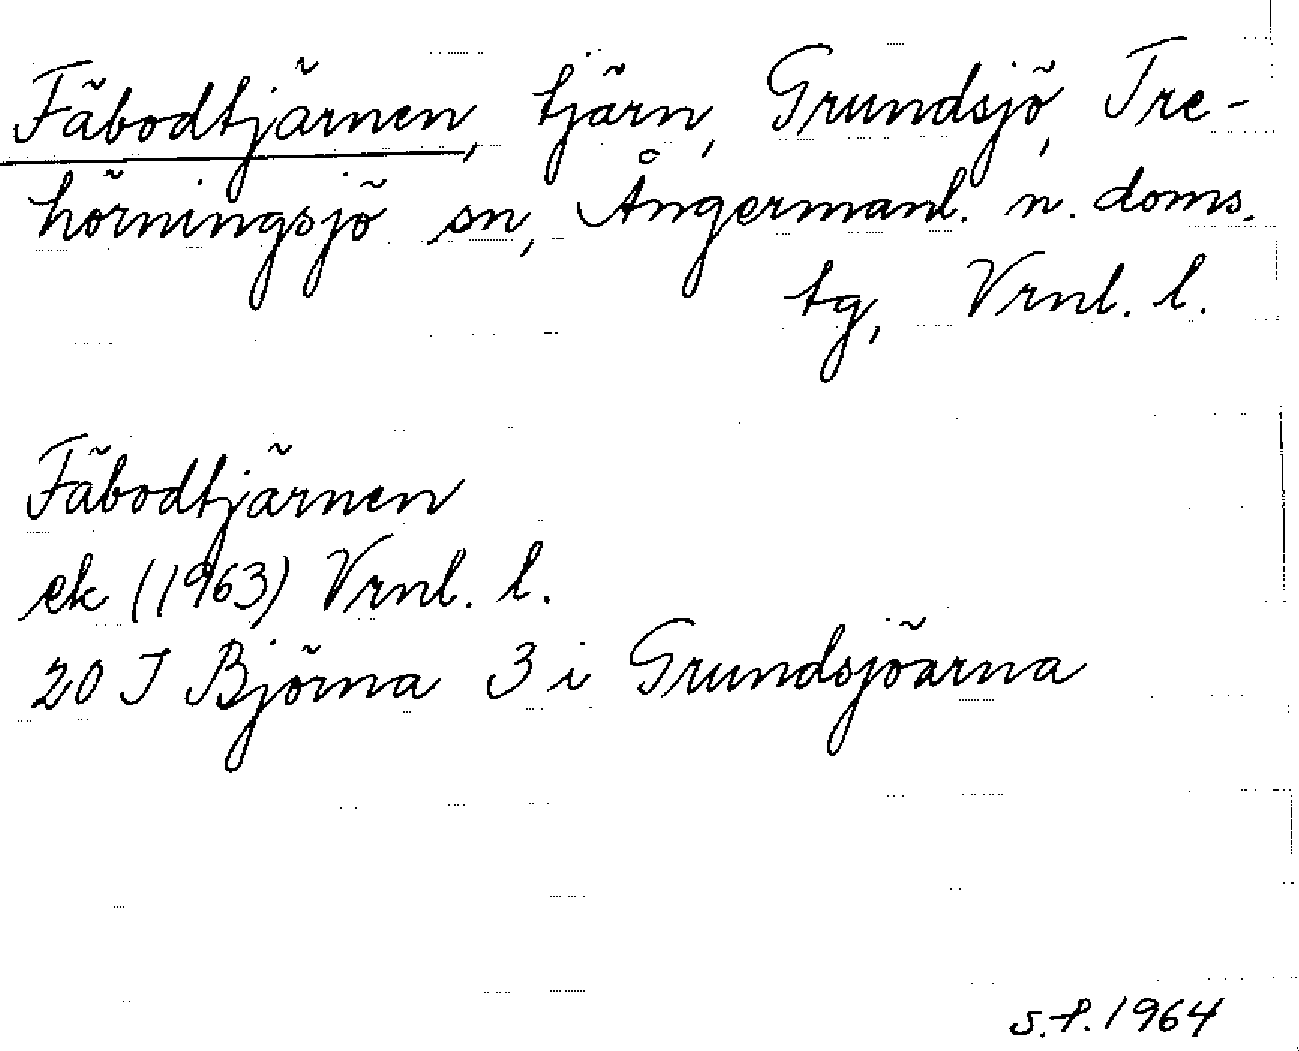 Fäbodtjärnen, tjärn, Grundsjö, Tre-
hörningsjö sn, Ångermanl. n. doms.
tg, Vrnl. l.
Fäbodtjärnen
ek (1963) Vrnl. l.
20 I Björna 3 i Grundsjöarna
s.f. 1964